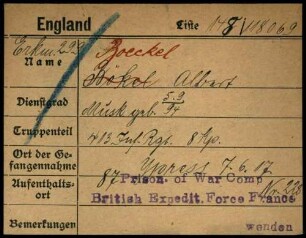 England Liste 178/18069
Erkm 299 Boeckel
Name Bökel Albert
Dienstgrad Musk geb. 5.9 94
Truppenteil 413 Inf. Rgt. 8 Kp.
Ort der Gefangennahme Ypres 7.6.17
Aufenthaltsort 87 Prison. of War Comp Nr. 228
British Expedit. Force France
Bemerkungen wenden